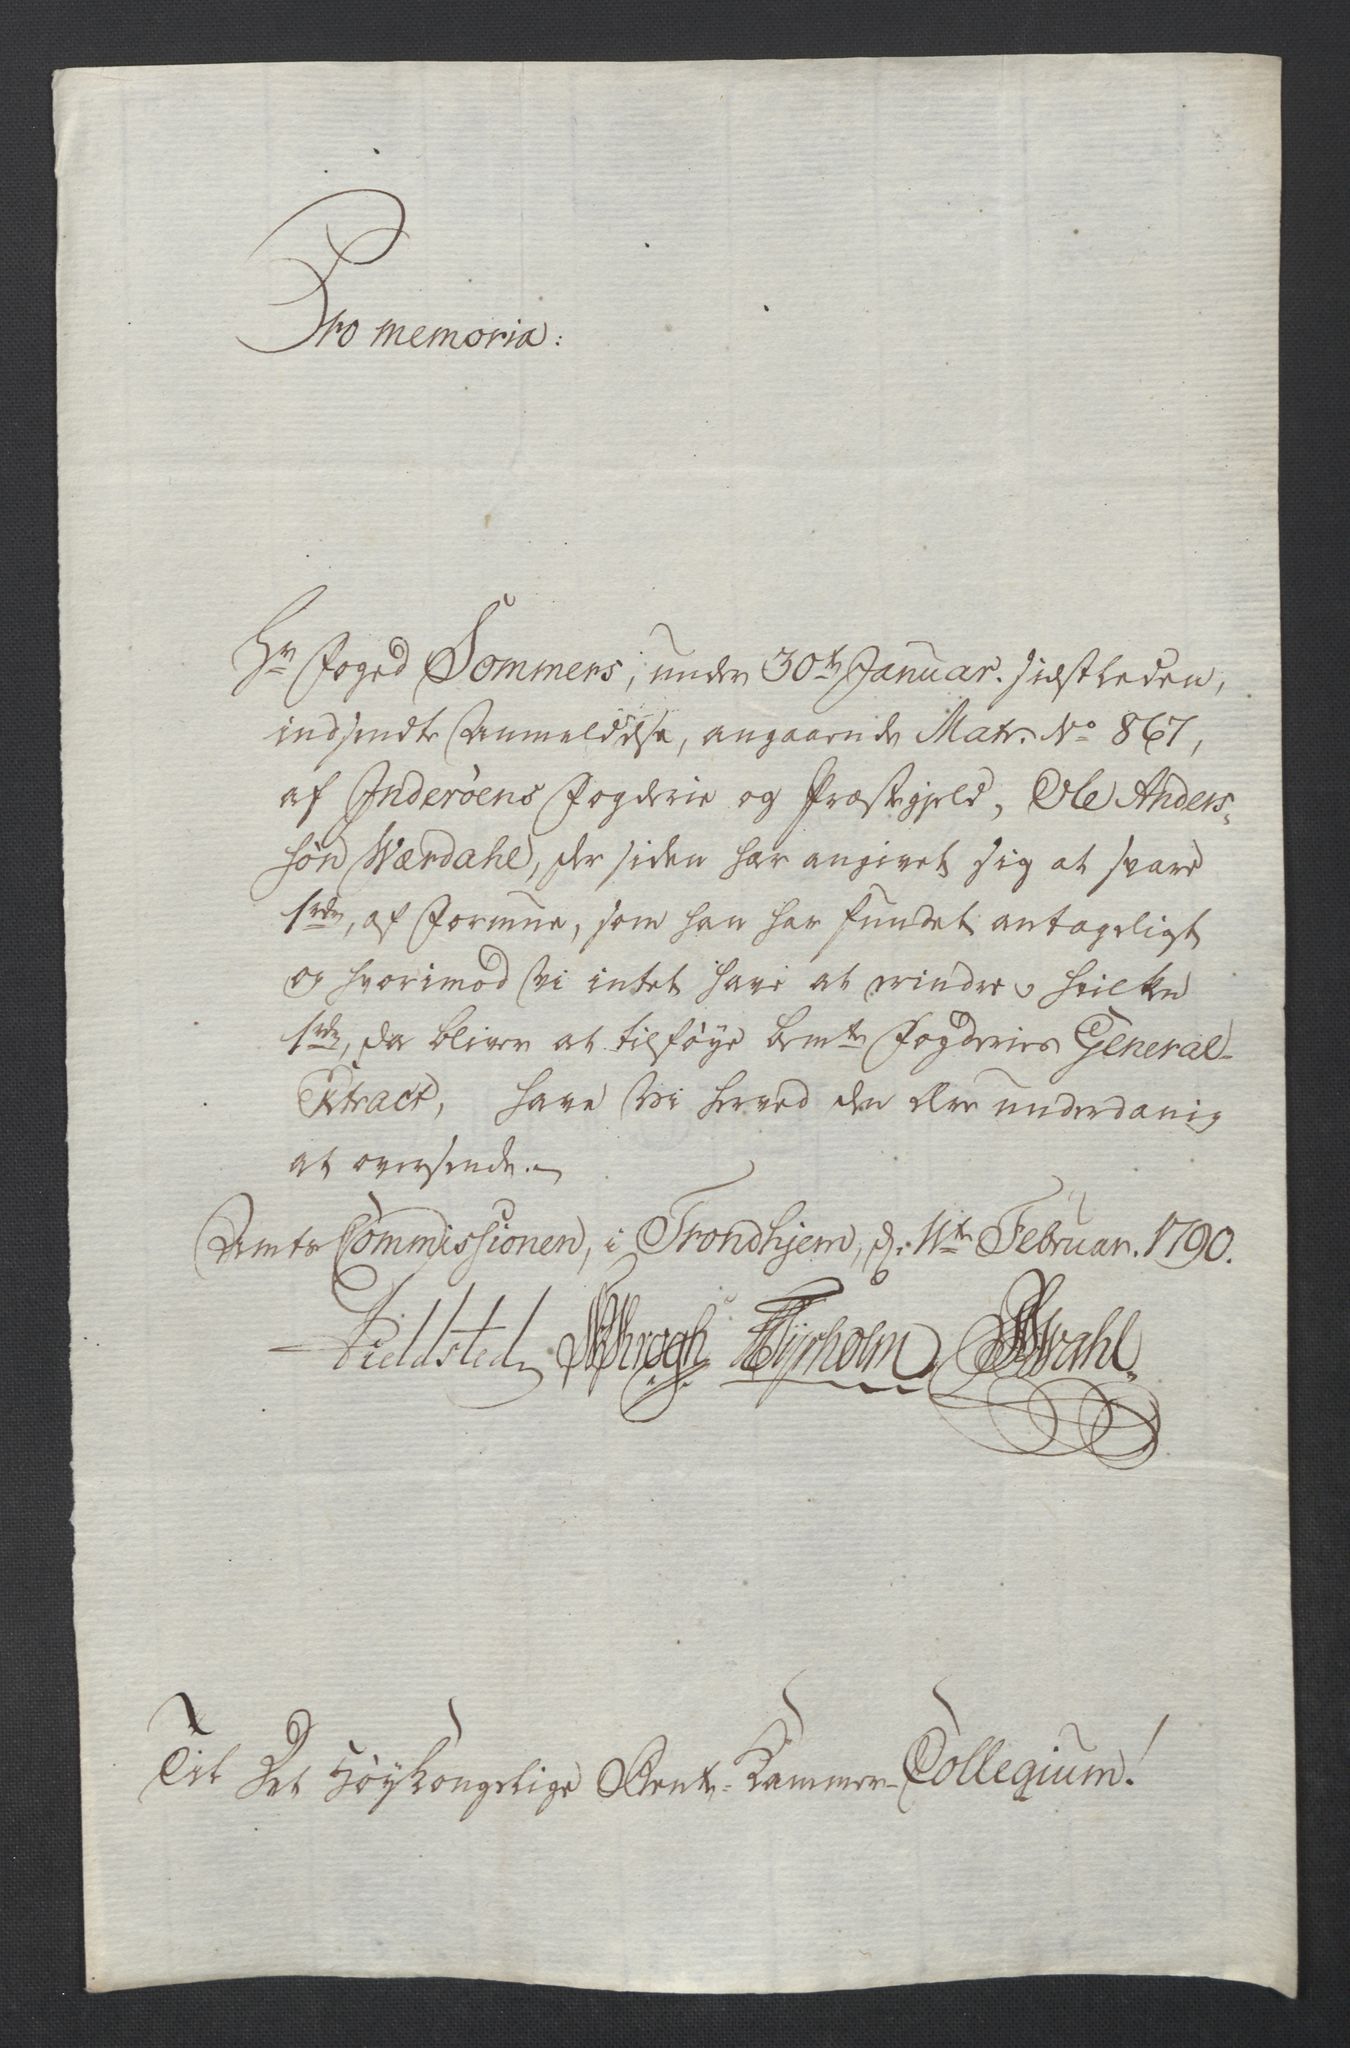 Pro memoria:
Hr Foged Sommers, under 30te Januar. sidstleden,
indsendte Anmeldelse, angaaende Matr. No 867,
af Inderöens Fogderie og Præstegield, Ole Anders-
sön Wærdahl, der siden har angivet sig at svare
1rdr, af Formue, som han har fundet antageligt
og hvorimod Vi intet have at erindre, hvilken
1rdr, der bliver at tilføye bemte Fogderies General-
Extract, have Vi herved den ære underdanig
at oversende.
Amts Commissionen, i Trondhjem, d. 11te Februar. 1790.
Fieldsted Krogh Tyrholm Wahl
Til Det Höykongelige Rente-Kammer-Collegium!